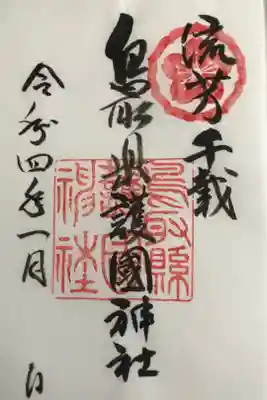 流芳千載
鳥取県護國神社
鳥取縣護國神社
令和四年一月
日